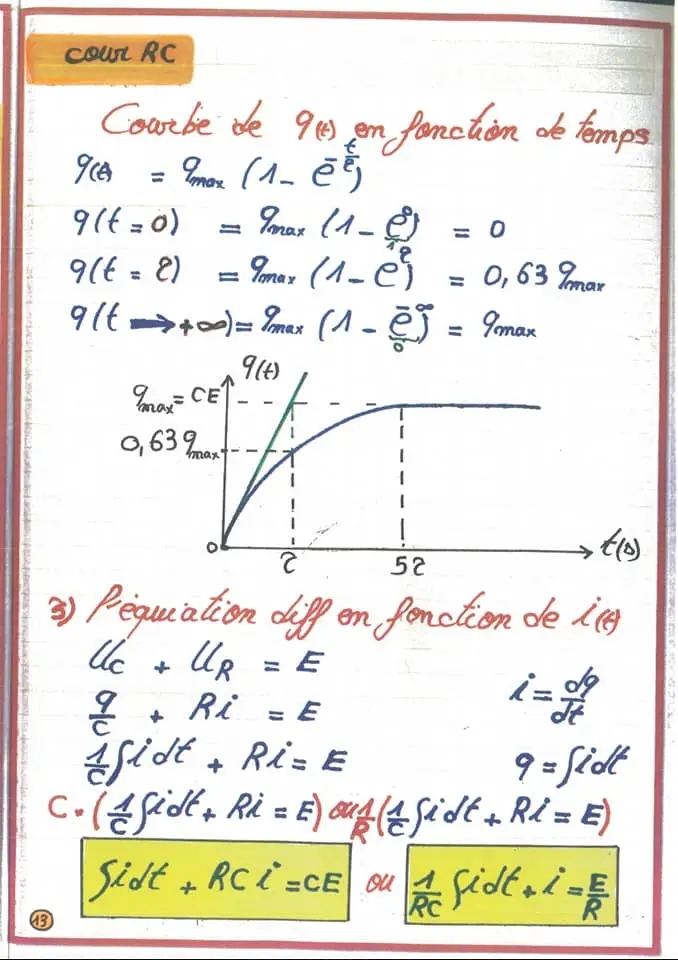 cour RC
Courbe de q(t) en fonction de temps
q(t) = qmax (1 - e^-t/τ)
q(t = 0) = qmax (1 - e^0) = 0
1
q(t = τ) = qmax (1 - e^τ) = 0,63 qmax
q(t → +∞) = qmax (1 - e^-∞) = qmax
0
q(t)
qmax = CE
0,63 qmax
0
τ
5τ
t(s)
3) l'équiation diff en fonction de i(t)
Uc + UR = E
q/C + Ri = E
i = dq/dt
1/C ∫idt + Ri = E
q = ∫idt
C • (1/C ∫idt + Ri = E) ou 1/R (1/C ∫idt + Ri = E)
∫idt + RC i = CE ou 1/RC ∫idt + i = E/R
13